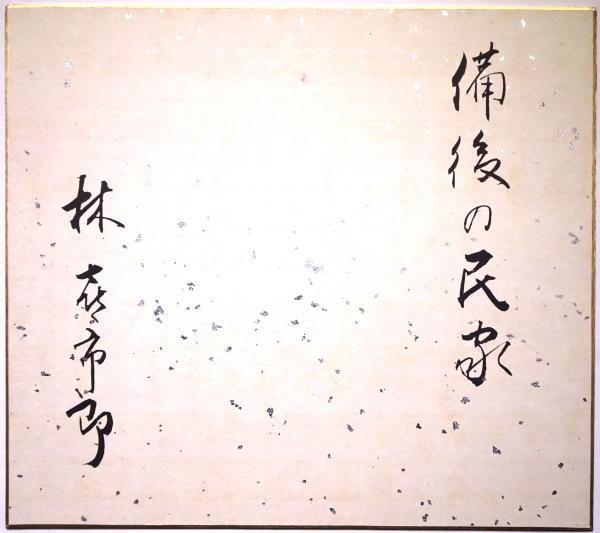 備後の民家
林喜市郎